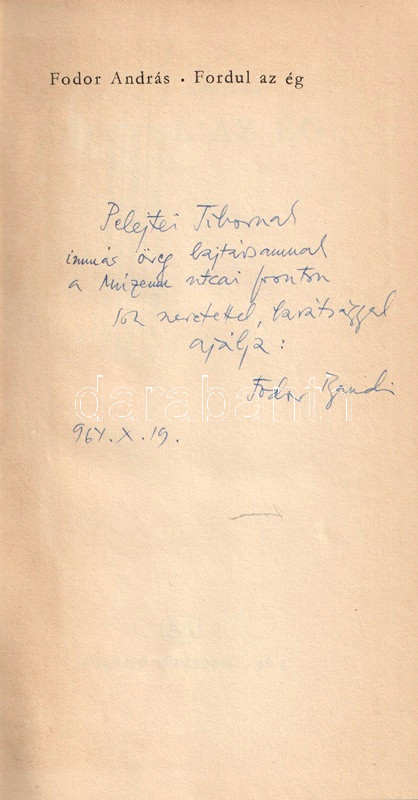 Fodor András • Fordul az ég
Pelejtei Tibornak
immás öreg bajtársamnak
a Múzeum utcai fronton
sok szeretettel, barátsággal
ajálja:
Fodor Bandi
darabanth
964. X. 19.